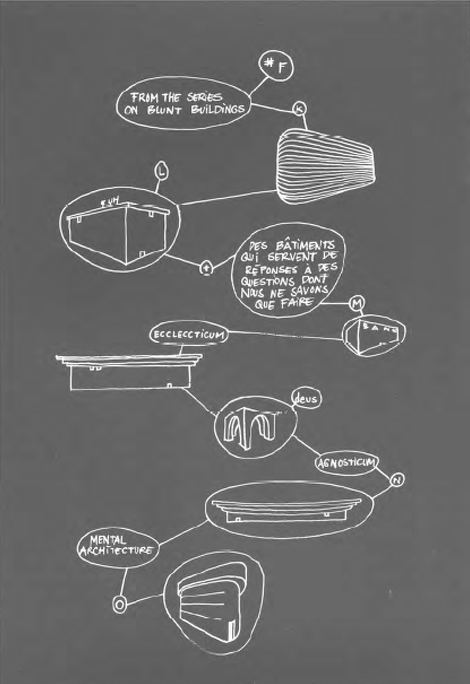 # F
FROM THE SERIES
ON BLUNT BUILDINGS
K
L
t
DES BÂTIMENTS
QUI SERVENT DE
RÉPONSES À DES
QUESTIONS DONT
NOUS NE SAVONS
QUE FAIRE
M
BANC
ECCLECCTICUM
deus
AGNOSTICUM
N
MENTAL
ARCHITECTURE
O